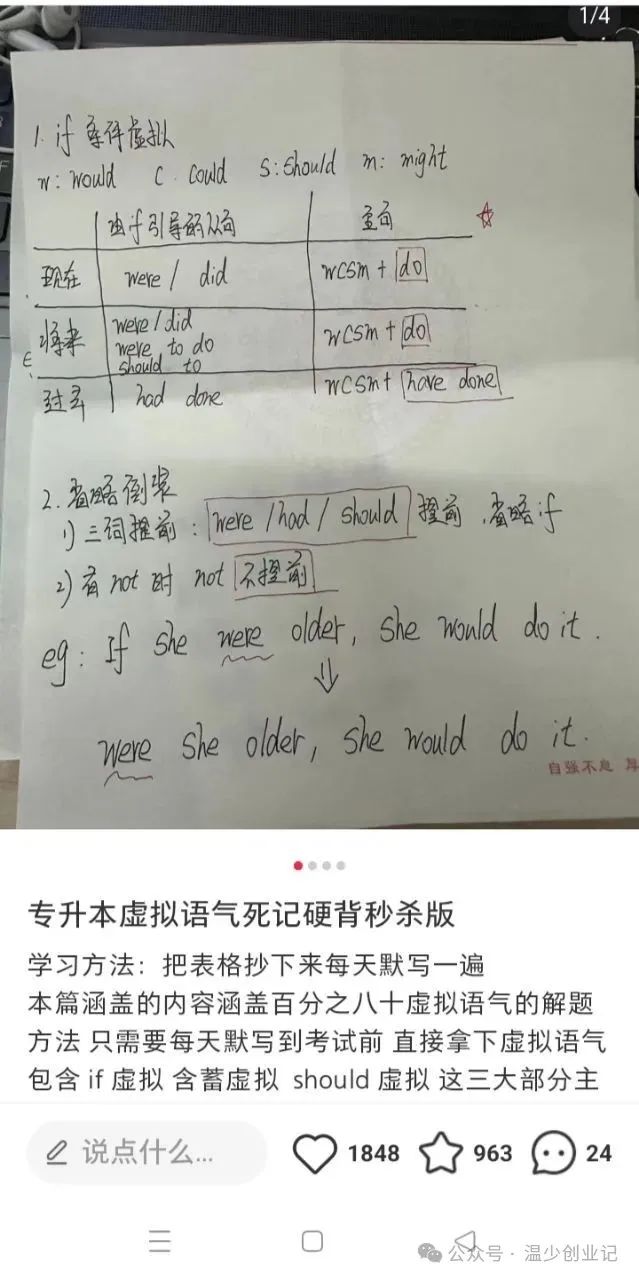 1/4
1. if 条件虚拟
w: would c. could s: should m: might
由if引导的从句 主句
现在 were / did wcsm + do
将来 were / did wcsm + do
were to do
should to
过去 had done wcsm + have done
2. 省略倒装
1) 三词提前: were / had / should 提前, 省略if
2) 有 not 时 not 不提前
eg: If she were older, she would do it.
were she older, she would do it.
自强不息
专升本虚拟语气死记硬背秒杀版
学习方法：把表格抄下来每天默写一遍
本篇涵盖的内容涵盖百分之八十虚拟语气的解题
方法 只需要每天默写到考试前 直接拿下虚拟语气
包含 if 虚拟 含蓄虚拟 should 虚拟 这三大部分主
说点什么... 1848 963 24
公众号 · 温少创业记